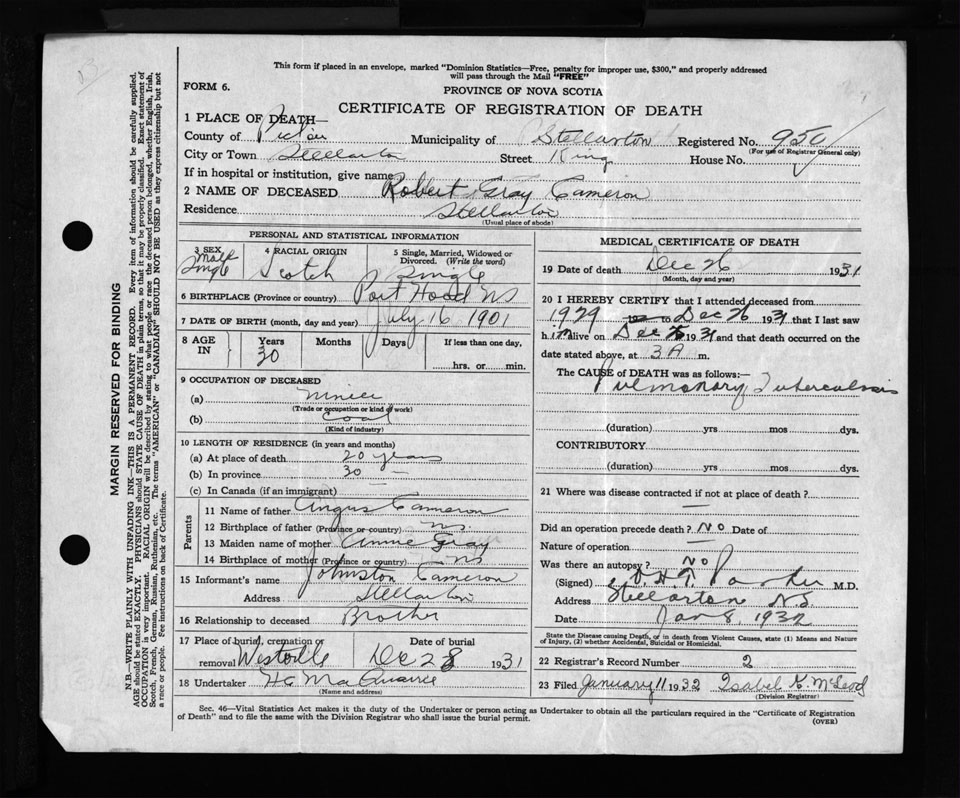 This form if placed in an envelope, marked "Dominion Statistics—Free, penalty for improper use, $300," and properly addressed
will pass through the Mail "FREE"
FORM 6.
PROVINCE OF NOVA SCOTIA
CERTIFICATE OF REGISTRATION OF DEATH
1 PLACE OF DEATH—
County of Pictou Municipality of Stellarton Registered No. 950
(For use of Registrar General only)
City or Town Stellarton Street King House No.
If in hospital or institution, give name
2 NAME OF DECEASED Robert Gray Cameron
Residence Stellarton
(Usual place of abode)
PERSONAL AND STATISTICAL INFORMATION
3 SEX Male Single
4 RACIAL ORIGIN Scotch
5 Single, Married, Widowed or Divorced. (Write the word) Single
6 BIRTHPLACE (Province or country) Port Hood NS
7 DATE OF BIRTH (month, day and year) July 16 1901
8 AGE IN Years 30 Months Days If less than one day, hrs. or min.
9 OCCUPATION OF DECEASED
(a) Miner
(Trade or occupation or kind of work)
(b) Coal
(Kind of industry)
10 LENGTH OF RESIDENCE (in years and months)
(a) At place of death 20 years
(b) In province 30 —
(c) In Canada (if an immigrant)
Parents
11 Name of father Angus Cameron
12 Birthplace of father (Province or country) NS
13 Maiden name of mother Annie Gray
14 Birthplace of mother (Province or country) NS
15 Informant's name Johnston Cameron
Address Stellarton
16 Relationship to deceased Brother
17 Place of burial, cremation or removal Westville Date of burial Dec 28 1931
18 Undertaker H C MacQuarrie
(Name and address)
MEDICAL CERTIFICATE OF DEATH
19 Date of death Dec 26 1931
(Month, day and year)
20 I HEREBY CERTIFY that I attended deceased from
1929 to Dec 26 1931 that I last saw
him alive on Dec 1931 and that death occurred on the
date stated above, at 3 A m.
The CAUSE of DEATH was as follows:—
Pulmonary Tuberculosis
(duration) yrs mos dys.
CONTRIBUTORY
(duration) yrs mos dys.
21 Where was disease contracted if not at place of death?
—
Did an operation precede death? No Date of
Nature of operation —
Was there an autopsy? No
(Signed) Parker M.D.
Address Stellarton N.S.
Date Jan 8 1932
State the Disease causing Death, or in death from Violent Causes, state (1) Means and Nature
of Injury, (2) whether Accidental, Suicidal or Homicidal.
22 Registrar's Record Number 2
23 Filed January 11 1932 Isabel K. McLeod
(Division Registrar)
Sec. 46—Vital Statistics Act makes it the duty of the Undertaker or person acting as Undertaker to obtain all the particulars required in the "Certificate of Registration
of Death" and to file the same with the Division Registrar who shall issue the burial permit.
(OVER)
MARGIN RESERVED FOR BINDING
N.B.—WRITE PLAINLY WITH UNFADING INK—THIS IS A PERMANENT RECORD. Every item of information should be carefully supplied.
AGE should be stated EXACTLY. PHYSICIANS should STATE CAUSE OF DEATH in plain terms, so that it may be properly classified. Exact statement of
OCCUPATION is very important. RACIAL ORIGIN will be described by stating to what people or race the deceased person belonged, whether English, Irish,
Scotch, French, German, Russian, Ruthenian, etc. The terms "AMERICAN" or "CANADIAN" SHOULD NOT BE USED as they express citizenship but not
a race or people. Fee instructions on back of Certificate.